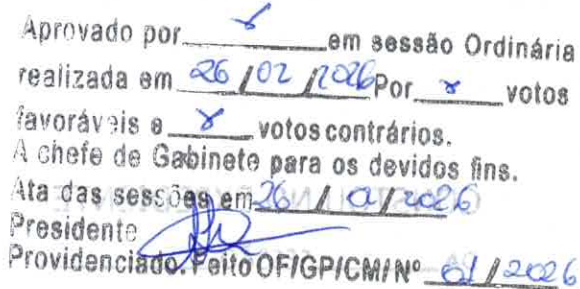 Aprovado por ____ em sessão Ordinária
realizada em 26/02/2026 Por ____ votos
favoráveis e ____ votos contrários.
A chefe de Gabinete para os devidos fins.
Ata das sessões em 26 / / 2026
Presidente
Providenciado. Feito OF/GP/CM/Nº 01/2026